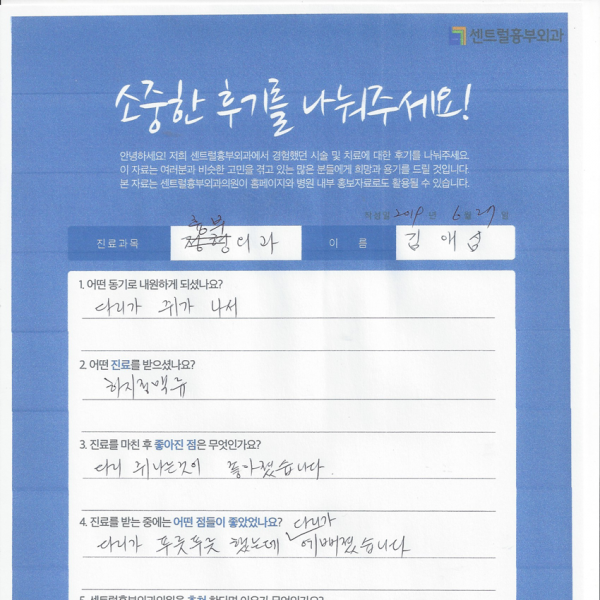 센트럴흉부외과
소중한 후기를 나눠주세요!
안녕하세요! 저희 센트럴흉부외과에서 경험했던 시술 및 치료에 대한 후기를 나눠주세요.
이 자료는 여러분과 비슷한 고민을 겪고 있는 많은 분들에게 희망과 용기를 드릴 것입니다.
본 자료는 센트럴흉부외과의원이 홈페이지와 병원 내부 홍보자료로도 활용될 수 있습니다.
작성일 2019 년 6 월 27 일
진료과목 흉부외과 이 름 김애섭
1. 어떤 동기로 내원하게 되셨나요?
다리가 쥐가 나서
2. 어떤 진료를 받으셨나요?
하지정맥류
3. 진료를 마친 후 좋아진 점은 무엇인가요?
다리 쥐나는것이 좋아졌습니다.
4. 진료를 받는 중에는 어떤 점들이 좋았었나요?
다리가 푸릇푸릇 했는데 다리가 예뻐졌습니다
5. 센트럴흉부외과의원을 추천 한다면 이유가 무엇인가요?